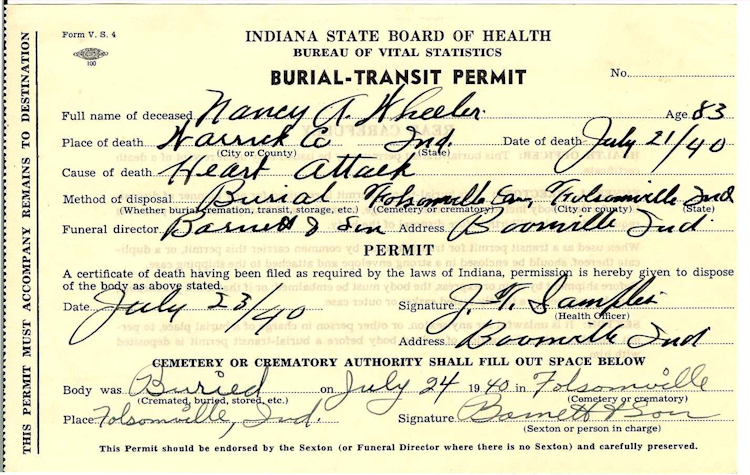 Form V. S. 4
100
INDIANA STATE BOARD OF HEALTH
BUREAU OF VITAL STATISTICS
BURIAL-TRANSIT PERMIT
No.
Full name of deceased Nancy A. Wheeler Age 83
Place of death Warrick Co Ind. Date of death July 21/40
(City or County) (State)
Cause of death Heart Attack
Method of disposal Burial Folsomville Cem, Folsomville Ind
(Whether burial, cremation, transit, storage, etc.) (Cemetery or crematory) (City or county) (State)
Funeral director Barnett & Son Address Boonville Ind.
PERMIT
A certificate of death having been filed as required by the laws of Indiana, permission is hereby given to dispose
of the body as above stated.
Date July 23/40 Signature J. T. Samples
(Health Officer)
Address Boonville Ind
CEMETERY OR CREMATORY AUTHORITY SHALL FILL OUT SPACE BELOW
Body was Buried on July 24 1940 in Folsomville
(Cremated, buried, stored, etc.) (Cemetery or crematory)
Place Folsomville, Ind. Signature Barnett & Son
(Sexton or person in charge)
This Permit should be endorsed by the Sexton (or Funeral Director where there is no Sexton) and carefully preserved.
THIS PERMIT MUST ACCOMPANY REMAINS TO DESTINATION